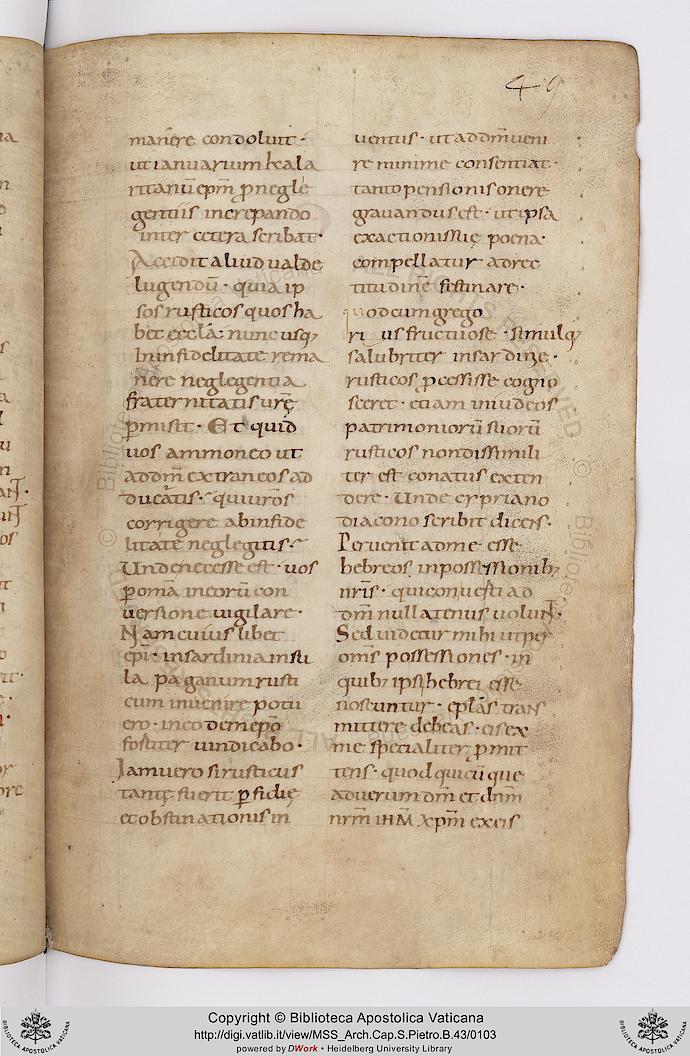 49
manēre condoluit ·
utianuariumkala
ritanū epm̄ ꝓnegle
gentiis increpando
inter cetera scribat·
Accidit aliud ualde
lugendū · quia ip
sos rusticos quos ha
bet eccla nunc usq;
Ininfidelitate rema
nere neglegentia
fraternitatis urę̄
ꝑmisit · Et quid
uos ammoneo ut
addm̄ extraneos ad
ducatis · qui uros
corrigere abinfide
litate neglegitis ·
Undenecesse est · uos
ꝑomā ineorū con
uersione uigilare ·
Nam cuius libet
epi · insardinia insu
la paganum rusti
cum inuenire potu
ero · ineodem epo
fortiter uindicabo ·
Iamuero sirusticus
tantę fuerit ꝑfidię
etobstinationis in
uentus · utaddm̄ueni
re minime consentiat ·
tanto pensionis onere
grauandus est · utipsa
exactionis suę poena
compellatur adrec
titudinē festinare ·
quodcum grego
rius fructuose · simulq;
salubriter insardinie ·
rusticos ꝓcessisse cogno
sceret · etiam iniudeos
patrimoniorū suorū
rusticos nondissimili
ter est conatus exten
dere · Unde cypriano
diacono scribit dicens ·
Peruenit adme esse
hebreos inpossessionib;
nr̄is · quiconuerti ad
dm̄ nullatenus uolunt ·
Sed uidetur mihi utper
oms̄ possessiones · in
quib; ipsi hebrei esse
noscuntur · eplās trans
mittere debeas · eis ex
me specialiter ꝓmit
tens · quod quicūque
aduerum dm̄ et dnm̄
nrm̄ ihm̄ xpm̄ exeis
Copyright © Biblioteca Apostolica Vaticana
http://digi.vatlib.it/view/MSS_Arch.Cap.S.Pietro.B.43/0103
powered by DWork • Heidelberg University Library